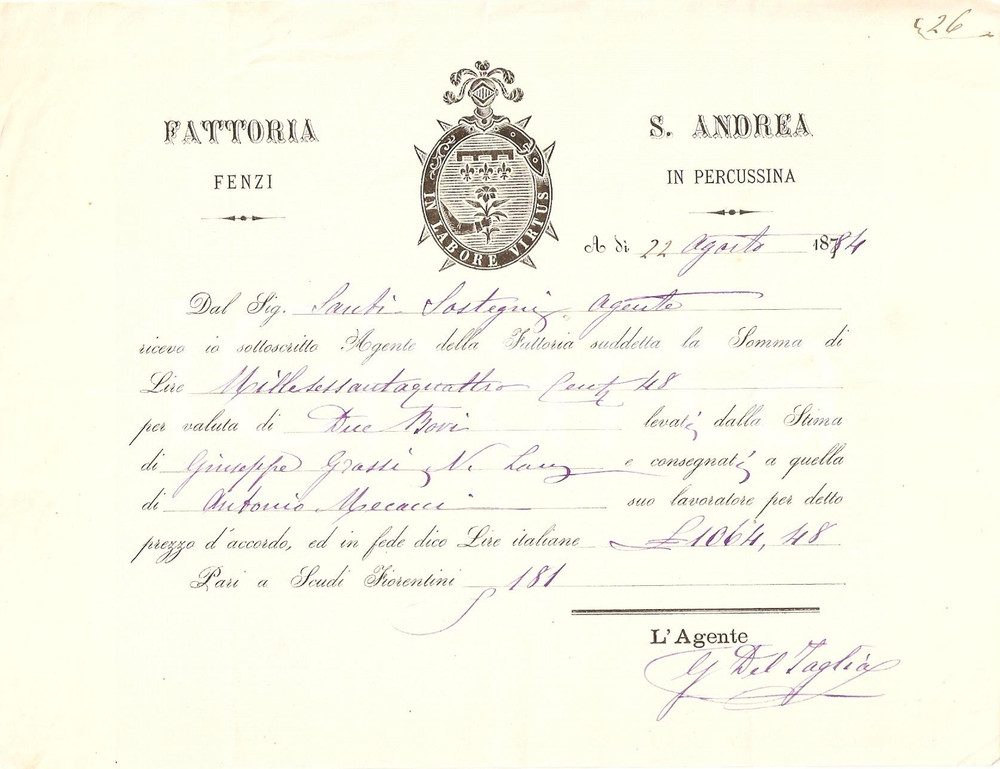 26
FATTORIA
FENZI
S. ANDREA
IN PERCUSSINA
IN LABORE VIRTUS
A dì 22 Agosto 1884
Dal Sig. Santi Sostegni Agente
ricevo io sottoscritto Agente della Fattoria suddetta la Somma di
Lire Millesessantaquattro Cent 48
per valuta di Due Bovi levati dalla Stima
di Giuseppe Grassi N. e consegnati a quella
di Antonio Mecacci suo lavoratore per detto
prezzo d'accordo, ed in fede dico Lire italiane £ 1064,48
Pari a Scudi Fiorentini 181
L'Agente
G Del Taglia